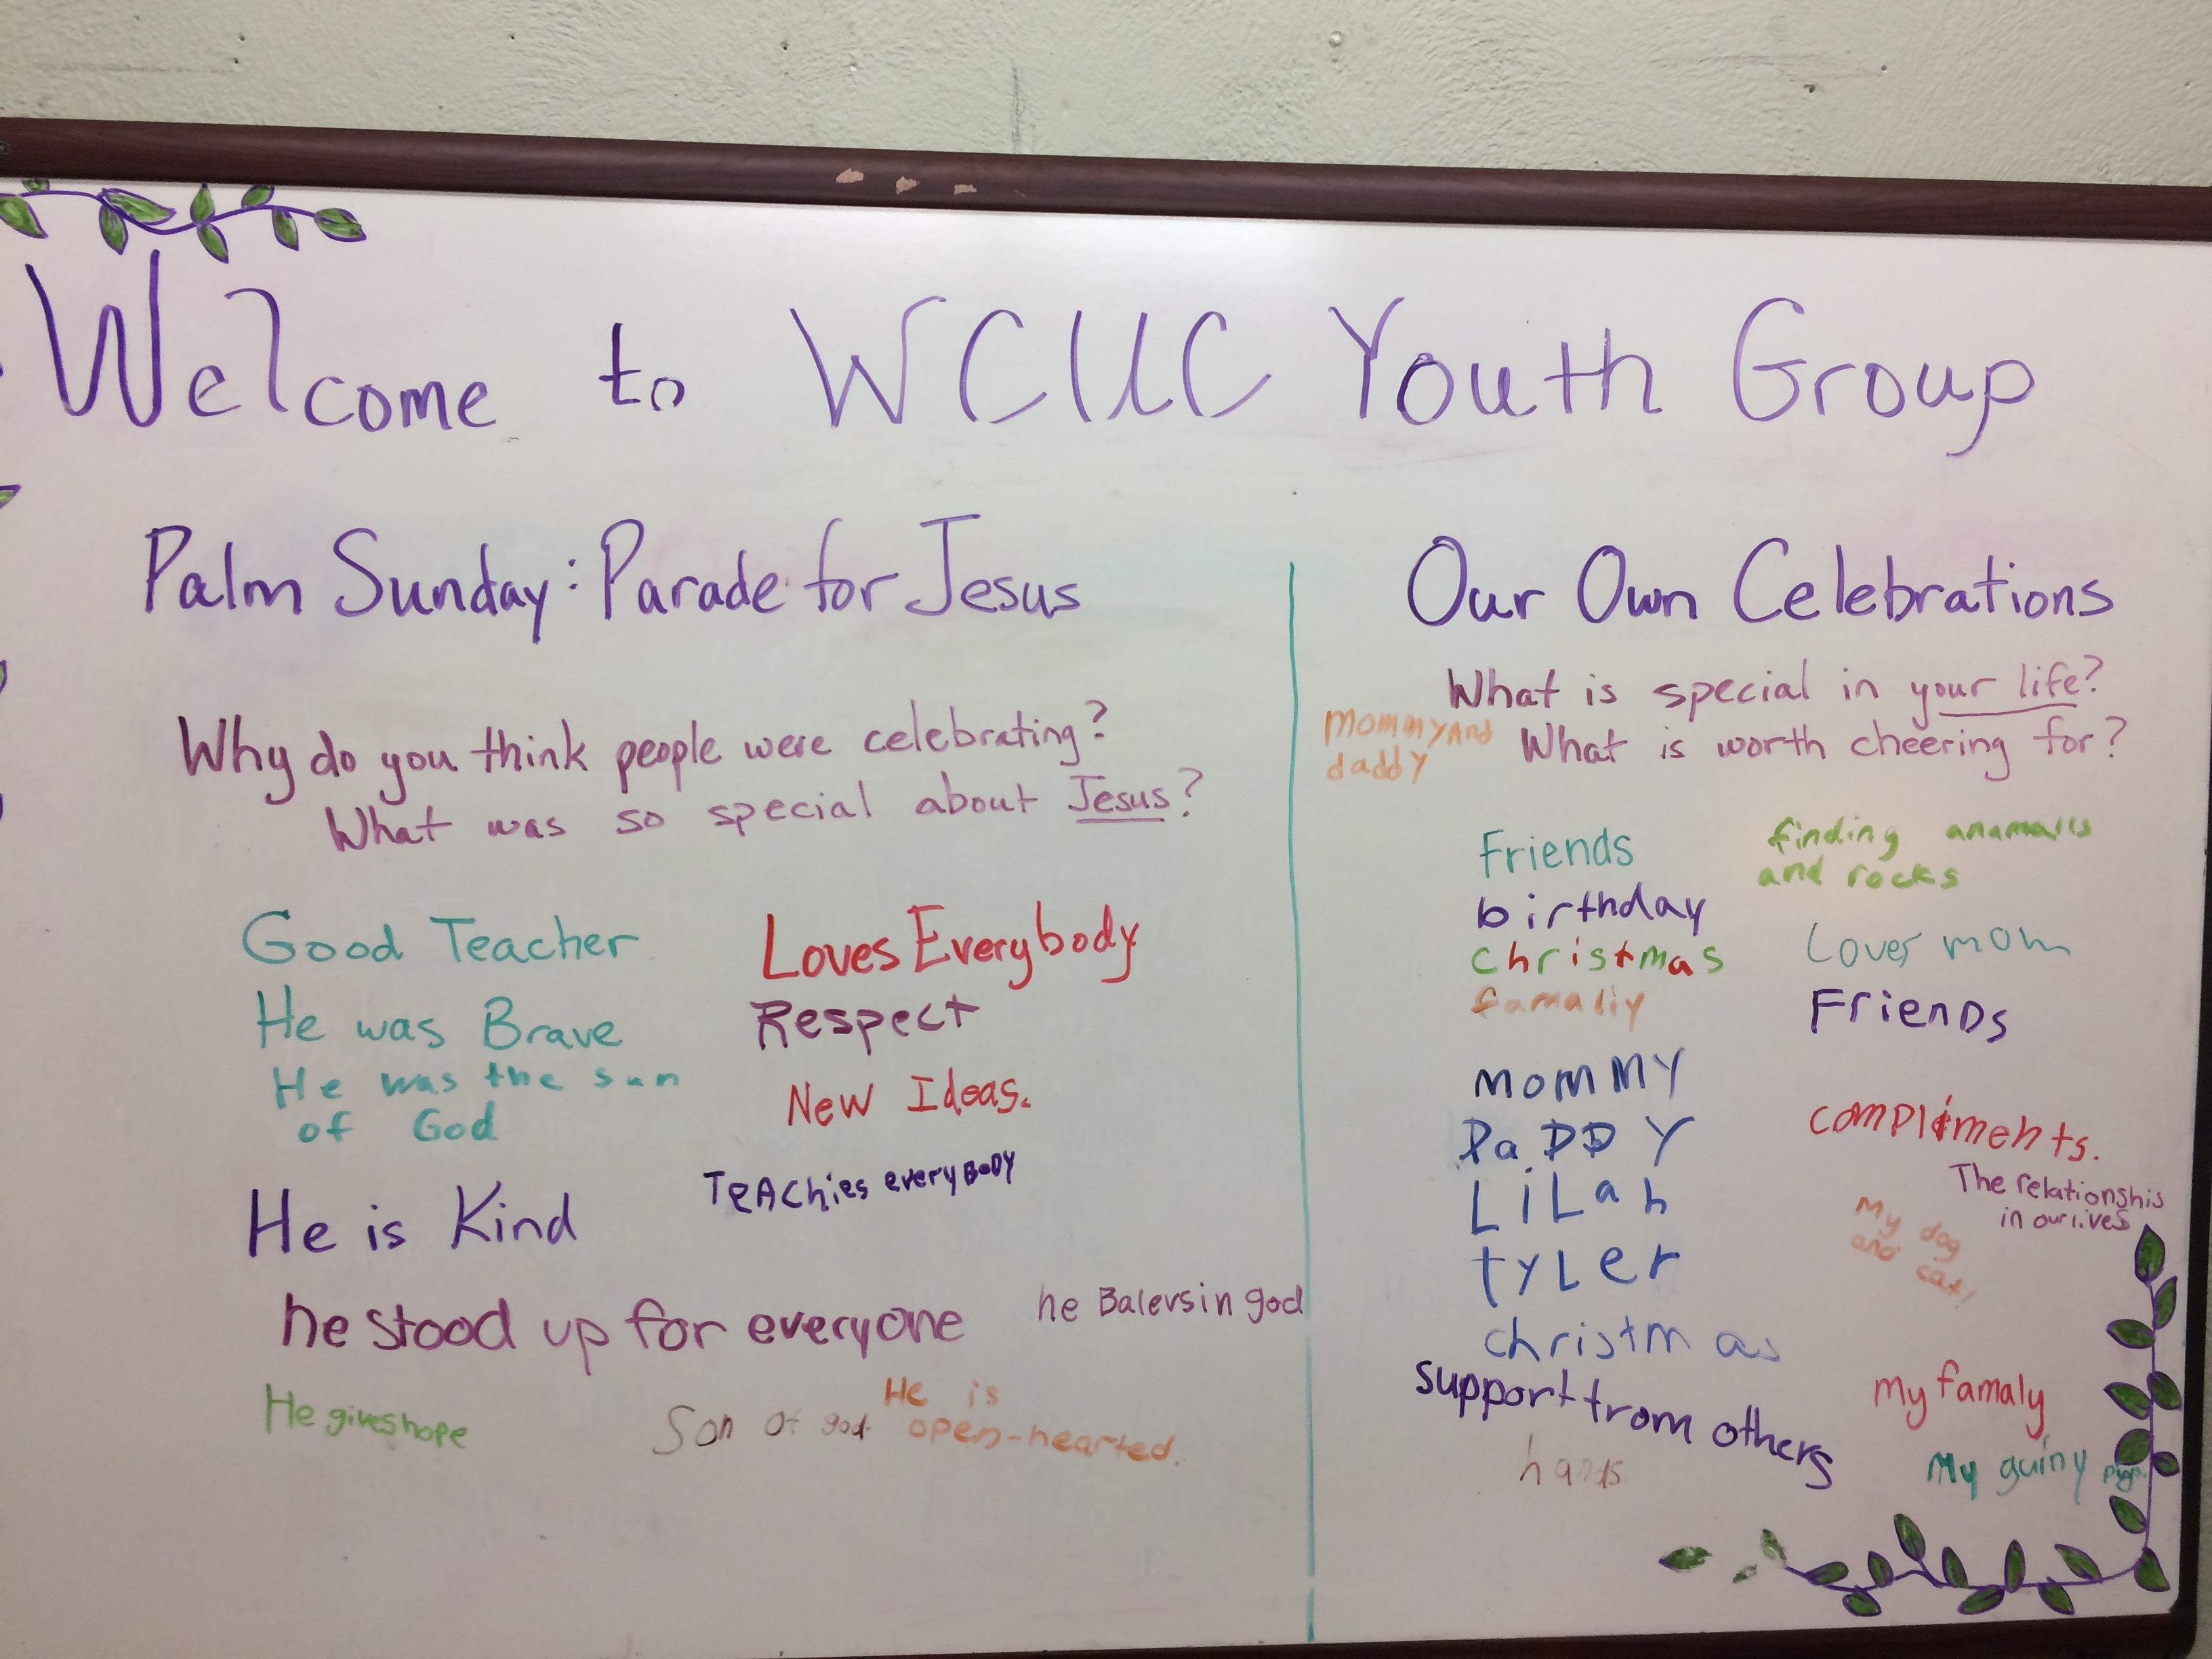 Welcome to WCUC Youth Group
Palm Sunday: Parade for Jesus
Why do you think people were celebrating?
What was so special about Jesus?
Good Teacher
He was Brave
He was the sun
of God
He is Kind
Loves Everybody
Respect
New Ideas.
TeAChies everyBODY
he stood up for everyone
he Balevs in god
He gives hope
Son of god
He is
open-hearted.
Our Own Celebrations
What is special in your life?
What is worth cheering for?
mommy And
daddy
Friends
birthday
christmas
famaliy
mommy
DaDDY
LiLah
tyLer
christmas
support from others
finding anamalls
and rocks
Loves mom
FrienDs
compliments.
The relationshis
in our lives
My dog
and cat!
My famaly
My guiny pigs